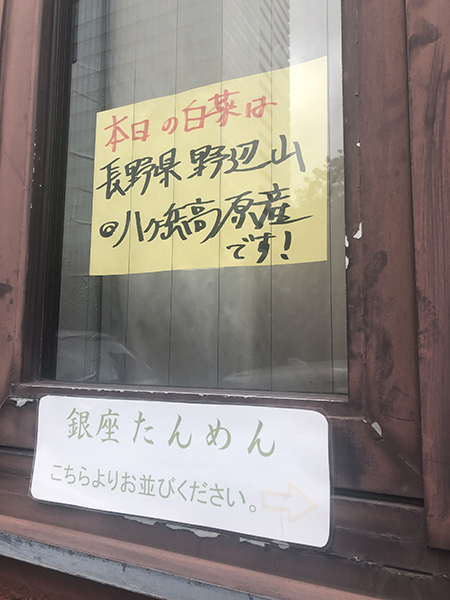 本日の白菜は
長野県野辺山
◎八ヶ岳高原産
です！
銀座たんめん
こちらよりお並びください。